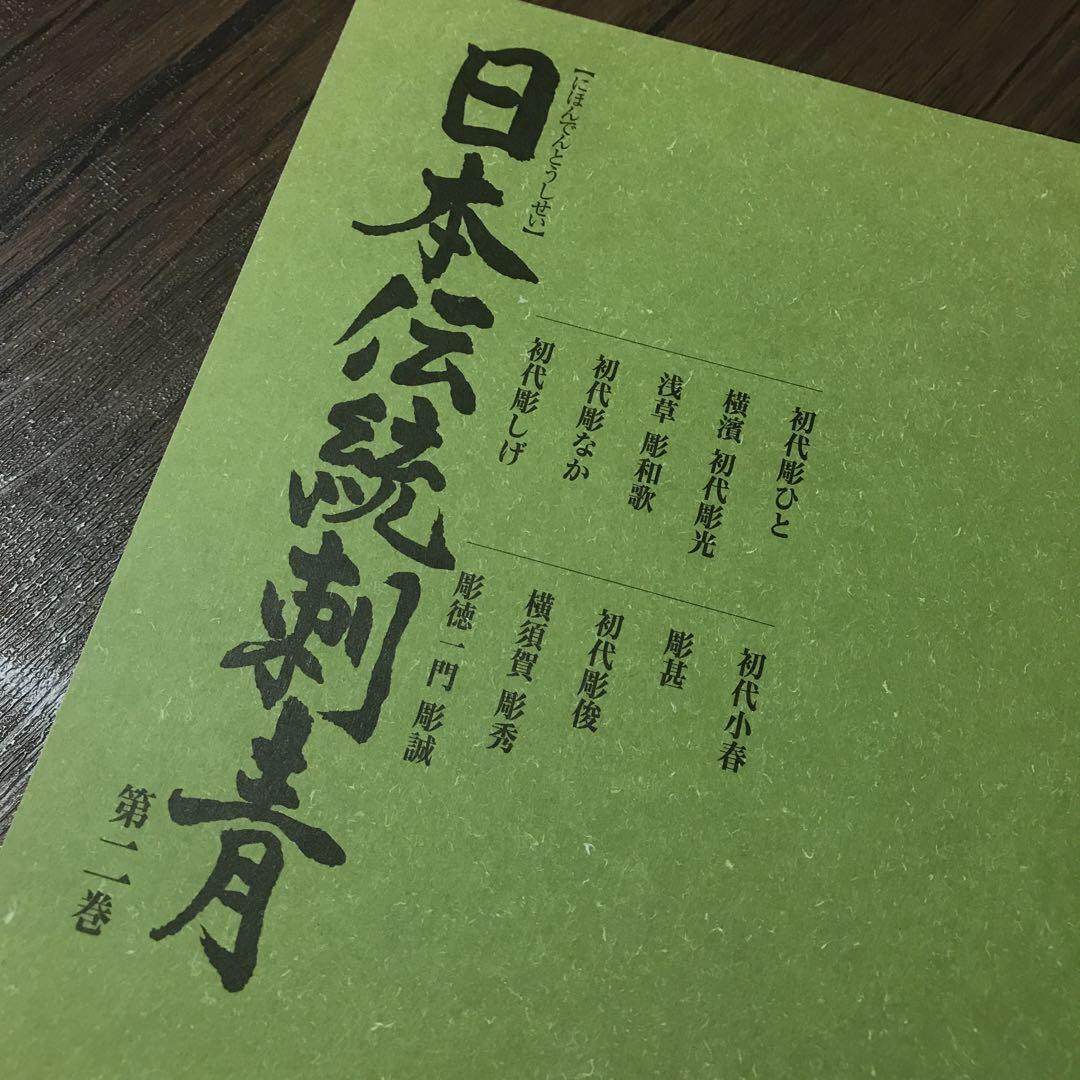 【にほんでんとうしせい】
日本伝統刺青
第二巻
初代彫ひと
横濱 初代彫光
浅草 彫和歌
初代彫なか
初代彫しげ
初代小春
彫甚
初代彫俊
横須賀 彫秀
彫徳一門 彫誠